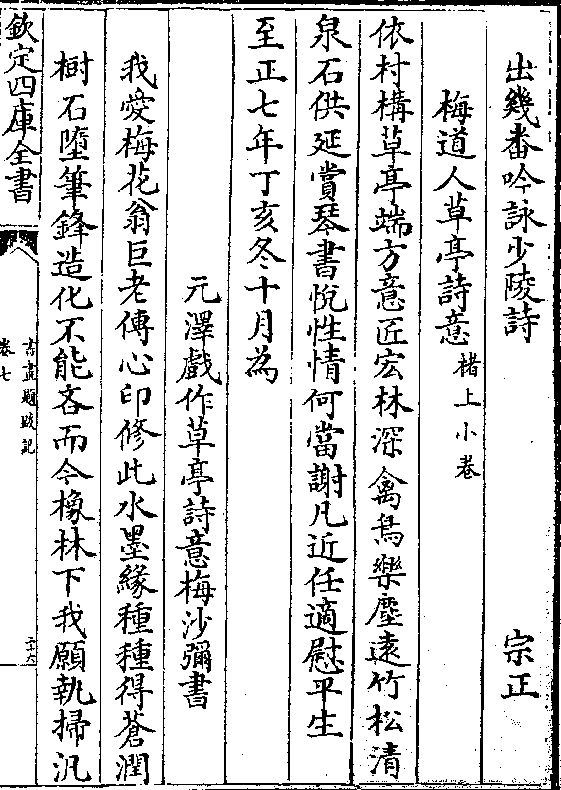 出幾番吟詠少陵詩　宗正
梅道人草亭詩意楮上小卷
依村構草亭端方意匠宏林深禽鳥樂塵遠竹松清
泉石供延賞琴書悅性情何當謝凡近任適慰平生
至正七年丁亥冬十月為
元澤戲作草亭詩意梅沙彌書
我愛梅花翁巨老傳心印修此水墨緣種種得蒼潤
樹石墮筆鋒造化不能吝而今橡林下我願執掃汛
欽定四庫全書
古畫題跋記
卷七
二十六